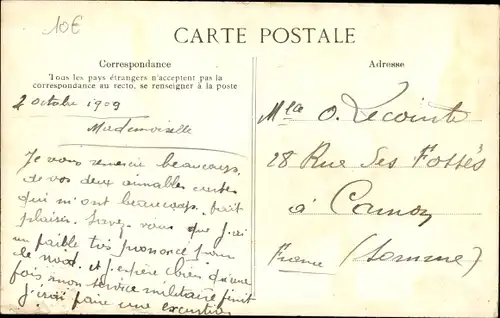 10€
CARTE POSTALE
Correspondance
Tous les pays étrangers n'acceptent pas la
correspondance au recto, se renseigner à la poste
Adresse
2 octobre 1909
Mademoiselle
Je vous remercie beaucoup
de vos deux aimables cartes
qui m'ont beaucoup fait
plaisir. Savez-vous que j'ai
un faible très prononcé pour
le nord. et j'espère bien qu'une
fois mon service militaire finit
j'irai faire une excursion
Mlle O. Lecointe
28 Rue des Fossés
à
France (Somme)